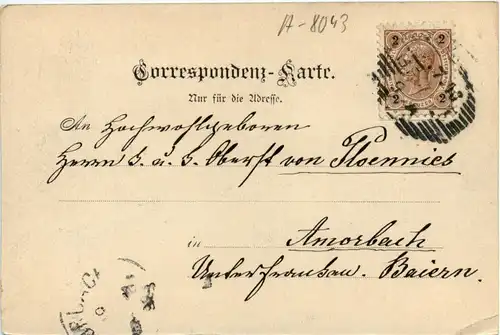 A-8043
2
2 2
Correspondenz-Karte.
Nur für die Adresse.
An Hochwohlgeboren
Herrn k. u. k. Oberst von Ploennies
in Amorbach
Unterfranken. Baiern.